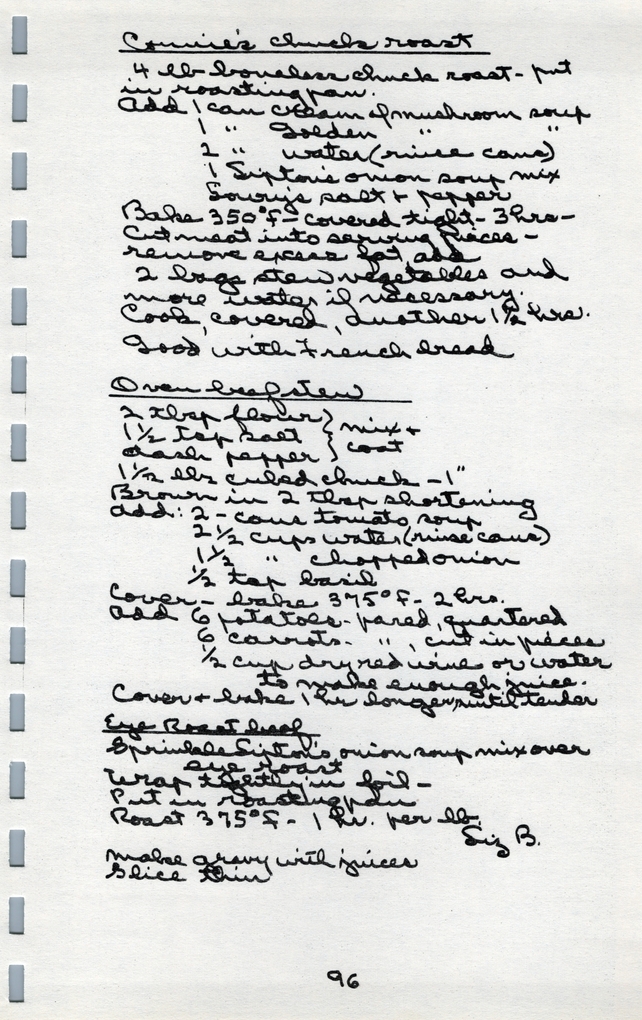 Connie's chuck roast
4 lb boneless chuck roast - put
in roasting pan.
Add 1 can cream of mushroom soup
1 " Golden " "
2 " water (rinse cans)
1 Lipton's onion soup mix
Lowry's salt + pepper
Bake 350°F - covered tight - 3 hrs -
Cut meat into serving pieces -
remove excess fat, add
2 bags stew vegetables and
more water if necessary.
Cook, covered, another 1 1/2 hrs.
Good with French bread
Oven beef stew
2 tbsp flour } mix +
1 1/2 tsp salt } coat
dash pepper }
1 1/2 lbs cubed chuck - 1"
Brown in 2 tbsp shortening
add: 2 - cans tomato soup
2 1/2 cups water (rinse cans)
1 1/2 " chopped onion
1/2 tsp basil
Cover - bake 375°F - 2 hrs.
add 6 potatoes - pared, quartered
6 carrots - " , cut in pieces
1/2 cup dry red wine or water
to make enough juice.
Cover + bake 1 hr longer, until tender
Eye Roast beef
Sprinkle Lipton's onion soup mix over
eye roast
Wrap tightly in foil -
Put in roasting pan
Roast 375°F - 1 hr. per lb.
Liz B.
make gravy with juices
Slice thin
96